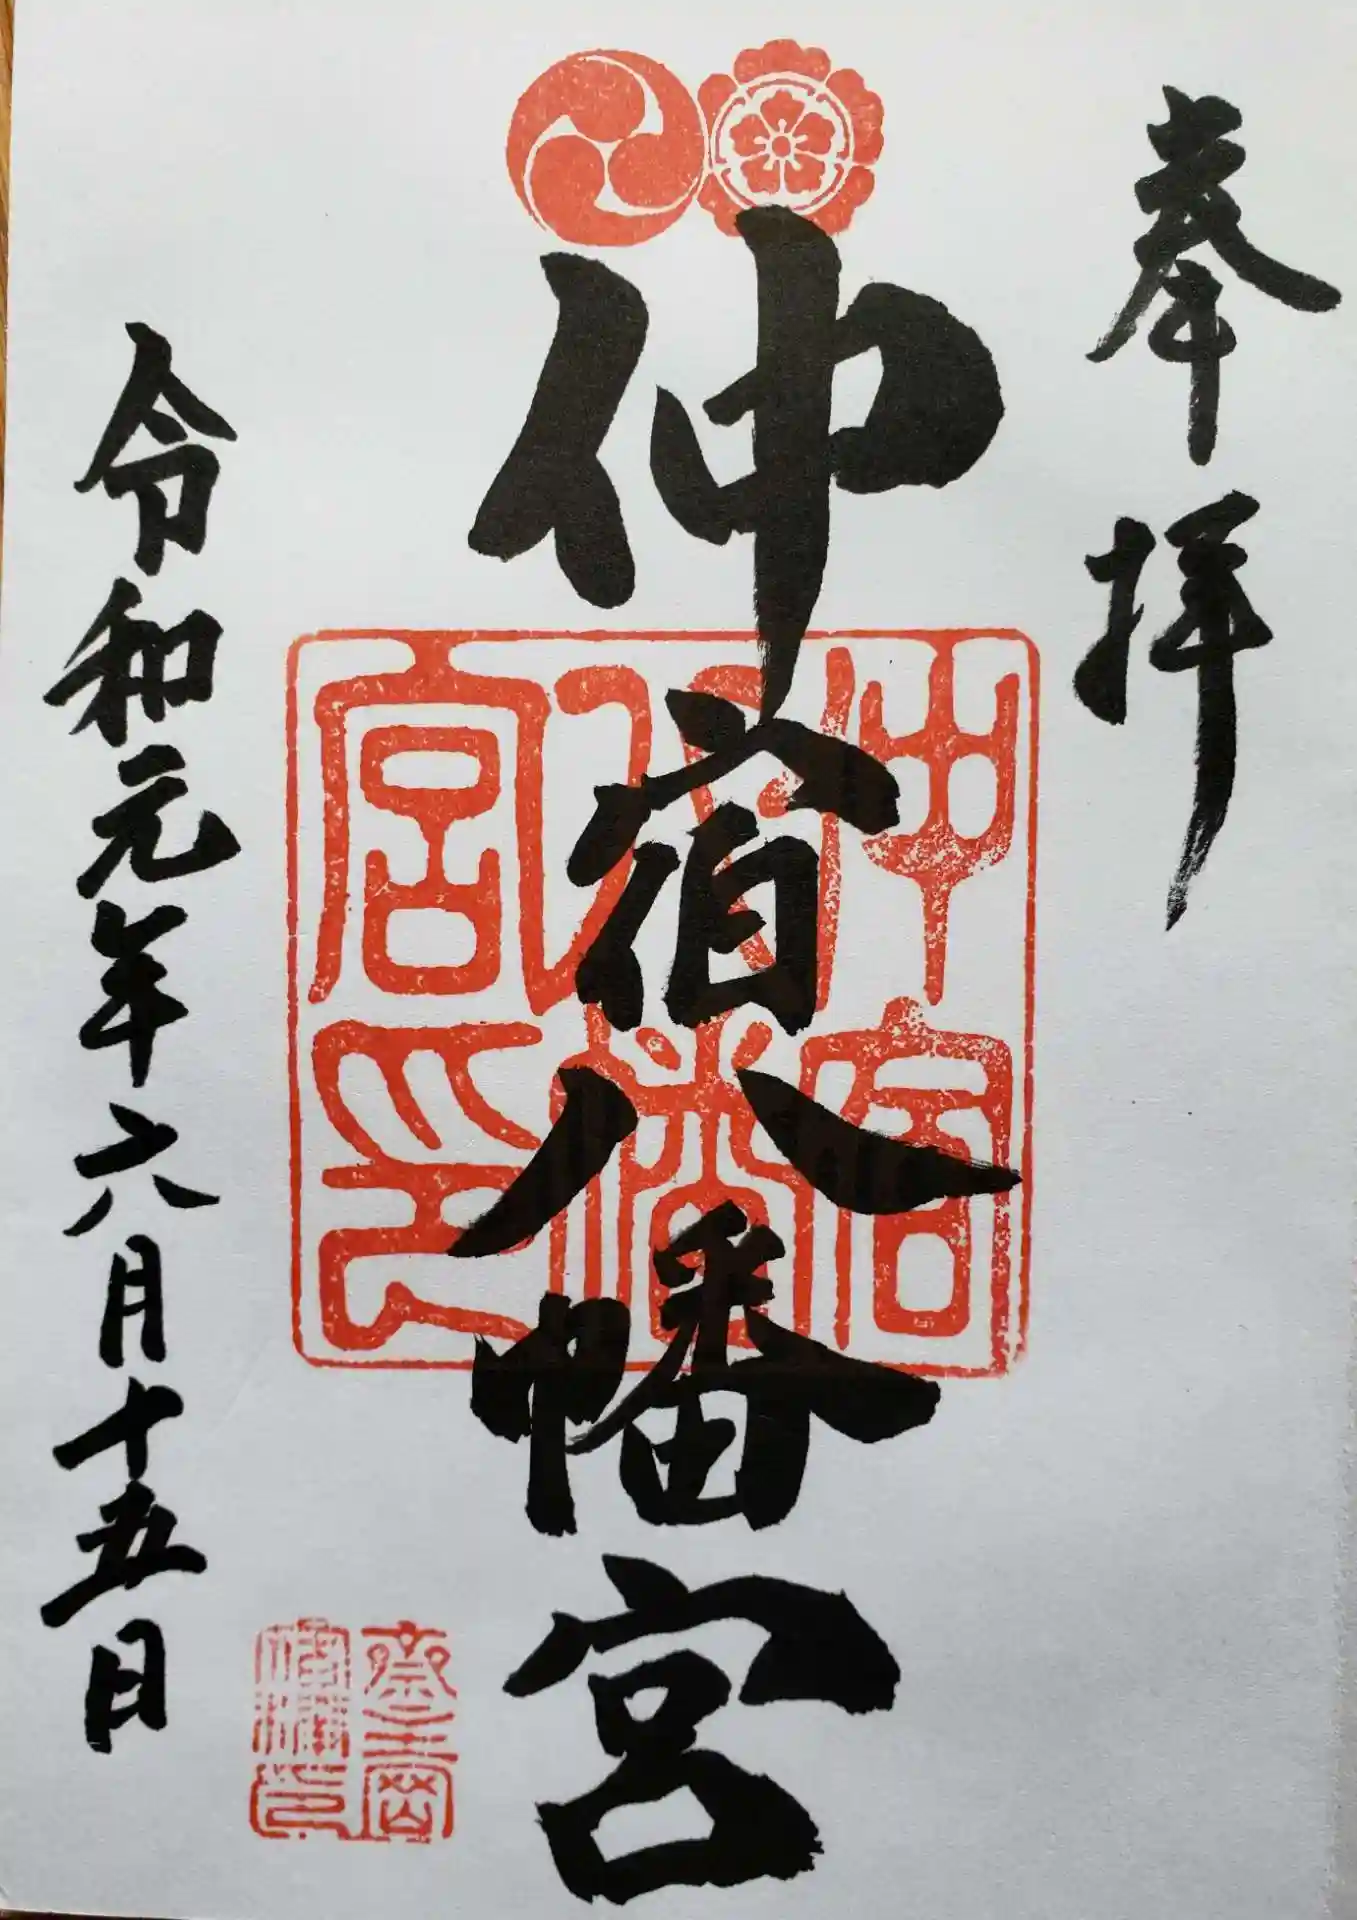 奉拝
仲宿八幡宮
仲宿八幡宮印
令和元年六月十五日